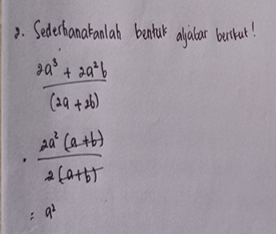 2. Sederhanakanlah bentuk aljabar berikut!
2a³ + 2a²b
(2a + 2b)
2a² (a+b)
2 (a+b)
= a²